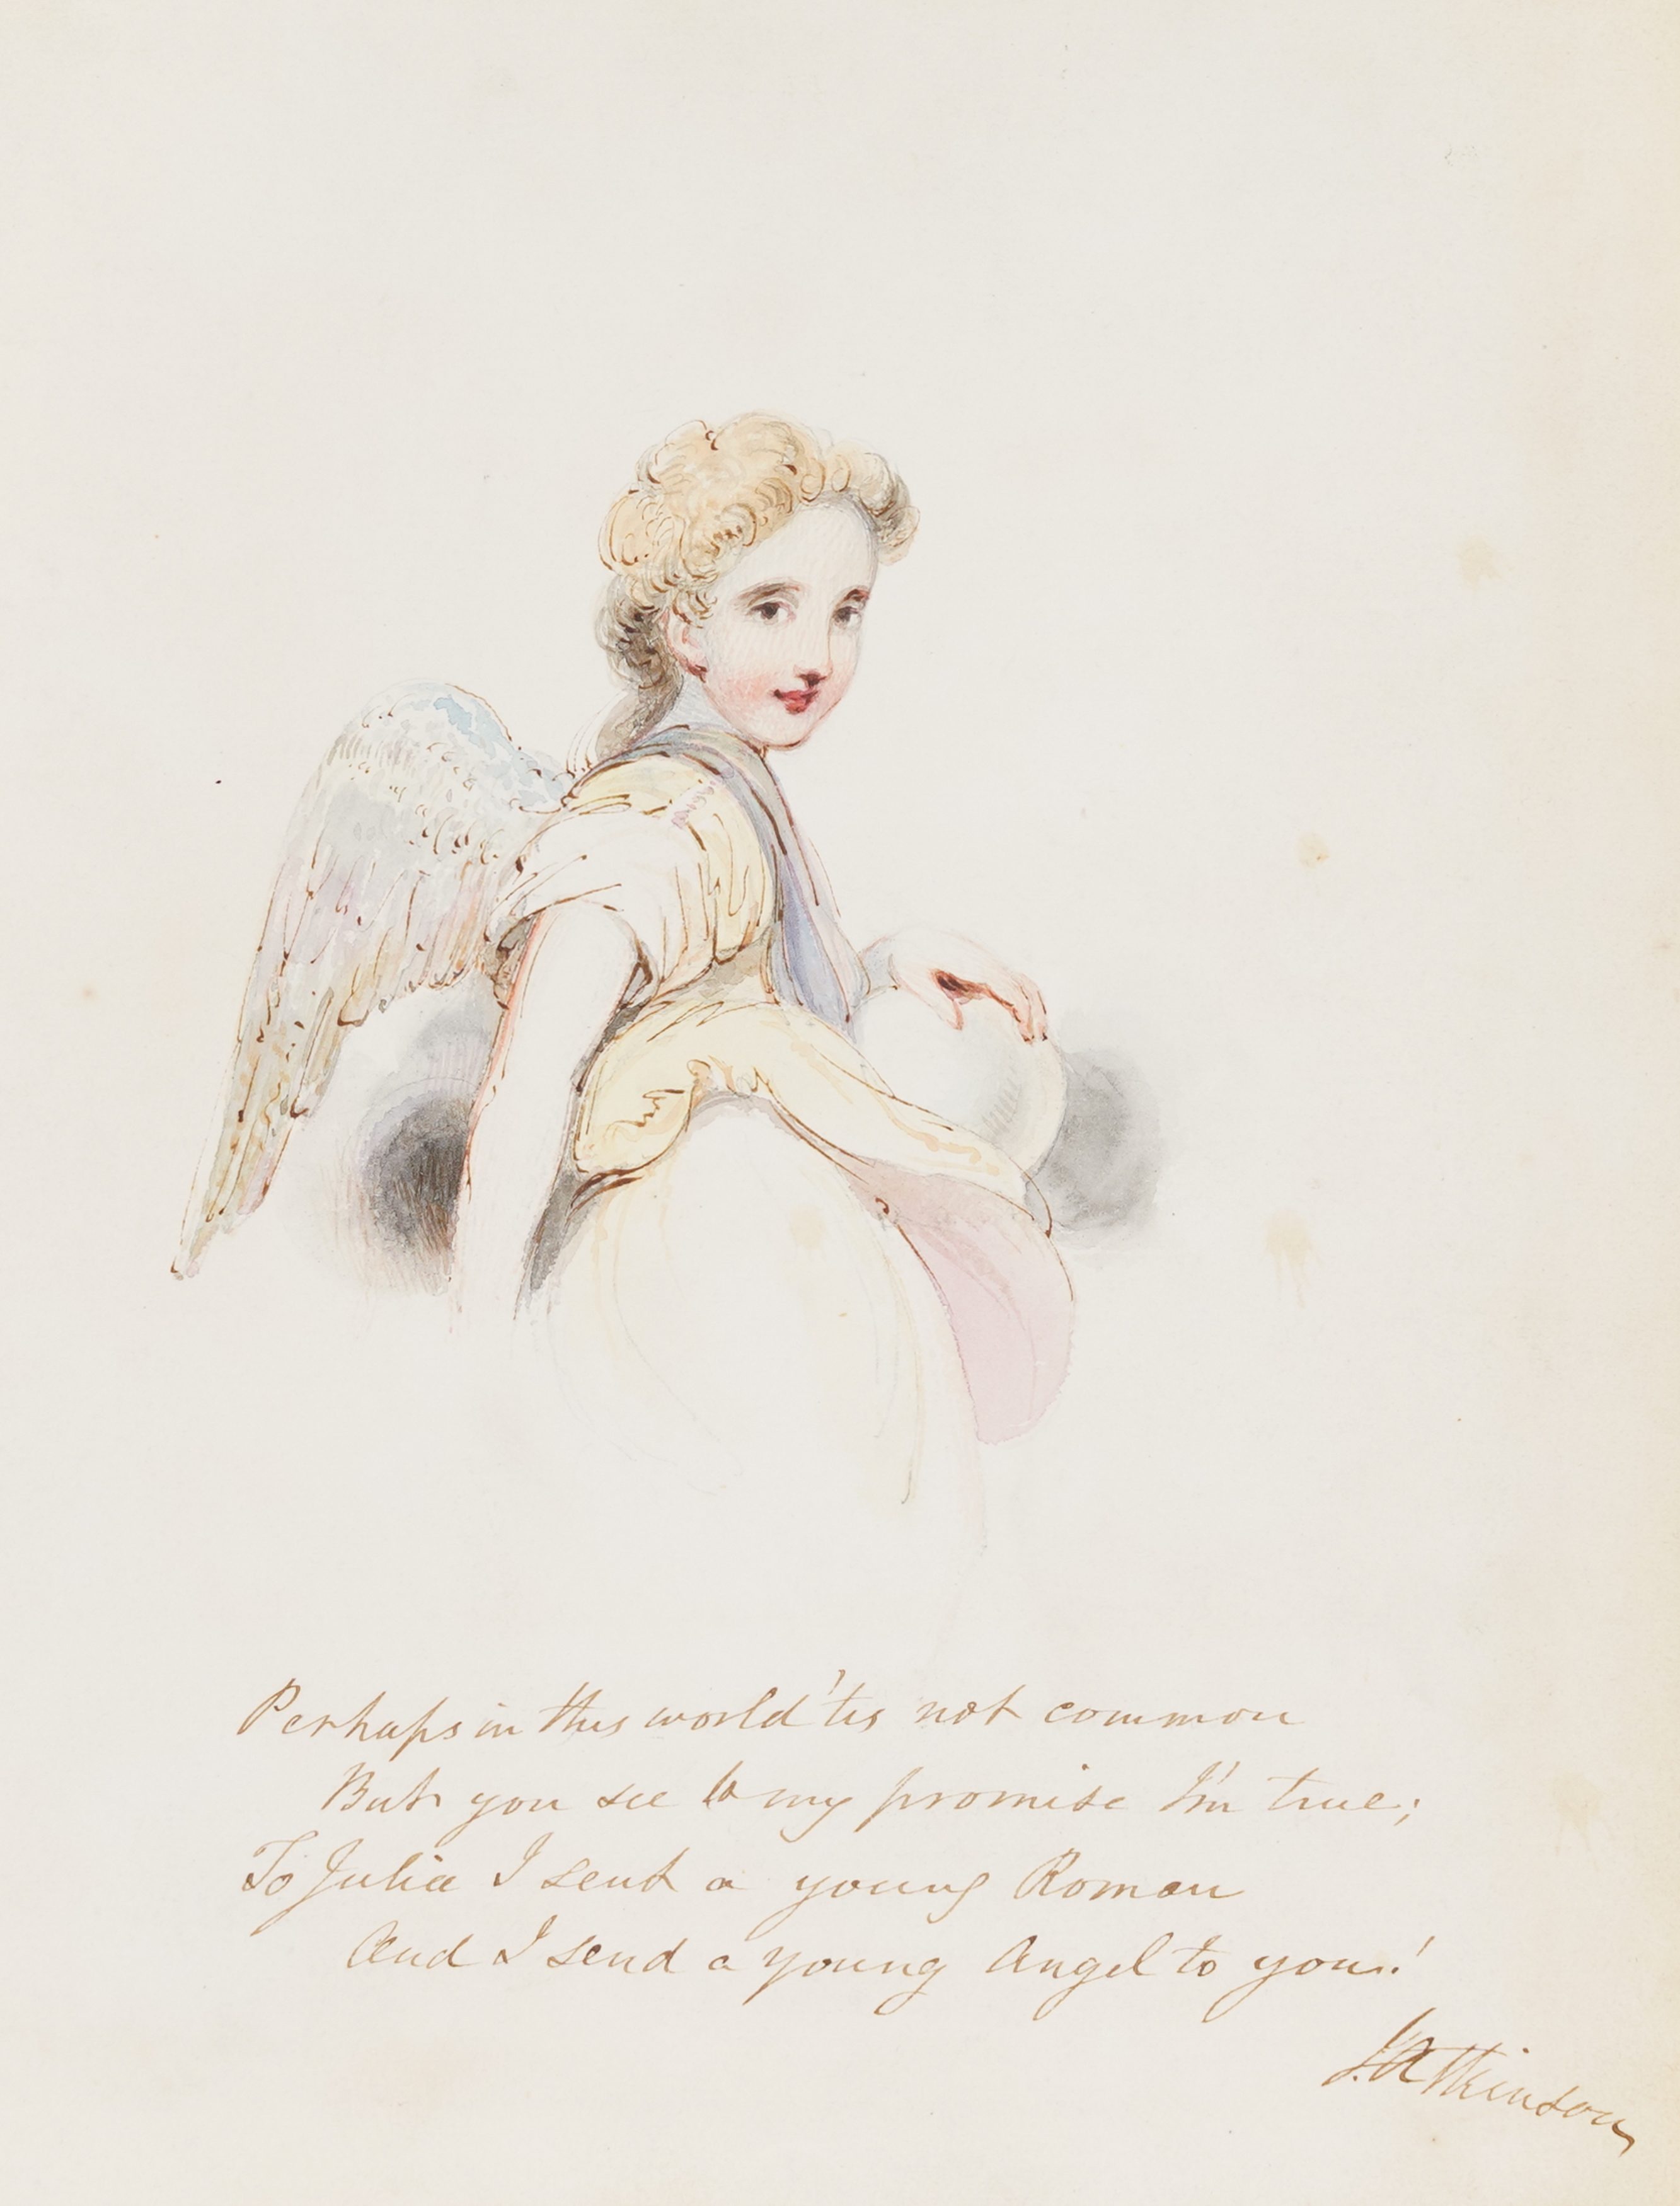 Perhaps in this world 'tis not common
But you see to my promise I'm true;
To Julia I sent a young Roman
And I send a young Angel to you!
J. Atkinson